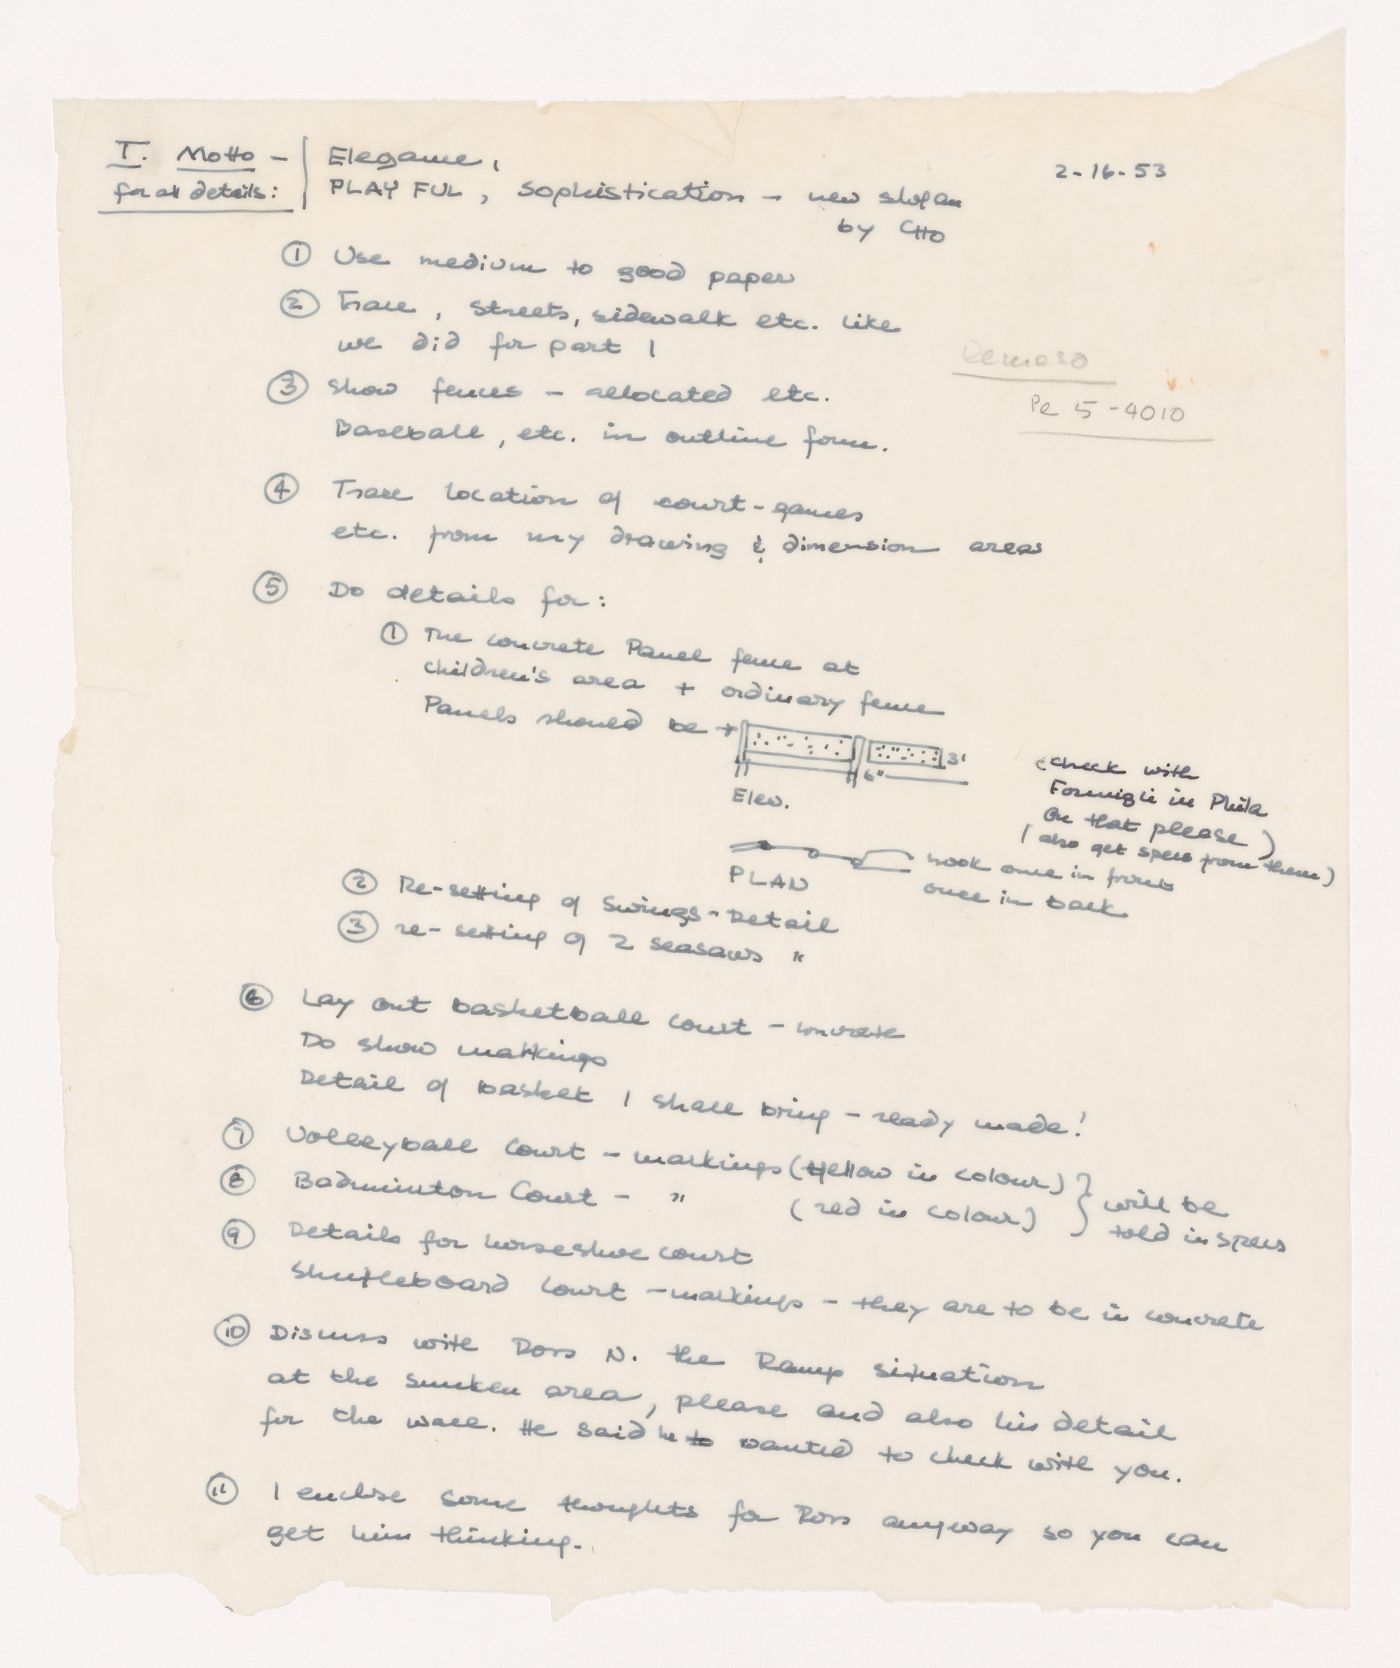 I. Motto -
for all details:
Elegance,
PLAYFUL, Sophistication - new slogan
by CHO
2-16-53
① Use medium to good paper
② Trace, streets, sidewalk etc. like
we did for part 1
③ Show fences - allocated etc.
Baseball, etc. in outline form.
Pe 5-4010
④ Trace location of court-games
etc. from my drawing & dimension areas
⑤ Do details for:
① The concrete Panel fence at
children's area + ordinary fence
Panels should be
3'
6"
Elev.
(check with
Formigli in Phila
on that please)
(also get specs from them)
PLAN
hook once in front
once in back
② Re-setting of Swings - Detail
③ re-setting of 2 seasaws "
⑥ Lay out basketball court - concrete
Do show markings
Detail of basket I shall bring - ready made!
⑦ Volleyball court - markings (Yellow in colour)
⑧ Badminton Court - " (red in colour)
will be
told in specs
⑨ Details for horseshoe court
shuffleboard court - markings - they are to be in concrete
⑩ Discuss with Ross N. the Ramp situation
at the sunken area, please and also his detail
for the wall. He said he to wanted to check with you.
⑪ I enclose some thoughts for Ross anyway so you can
get him thinking.